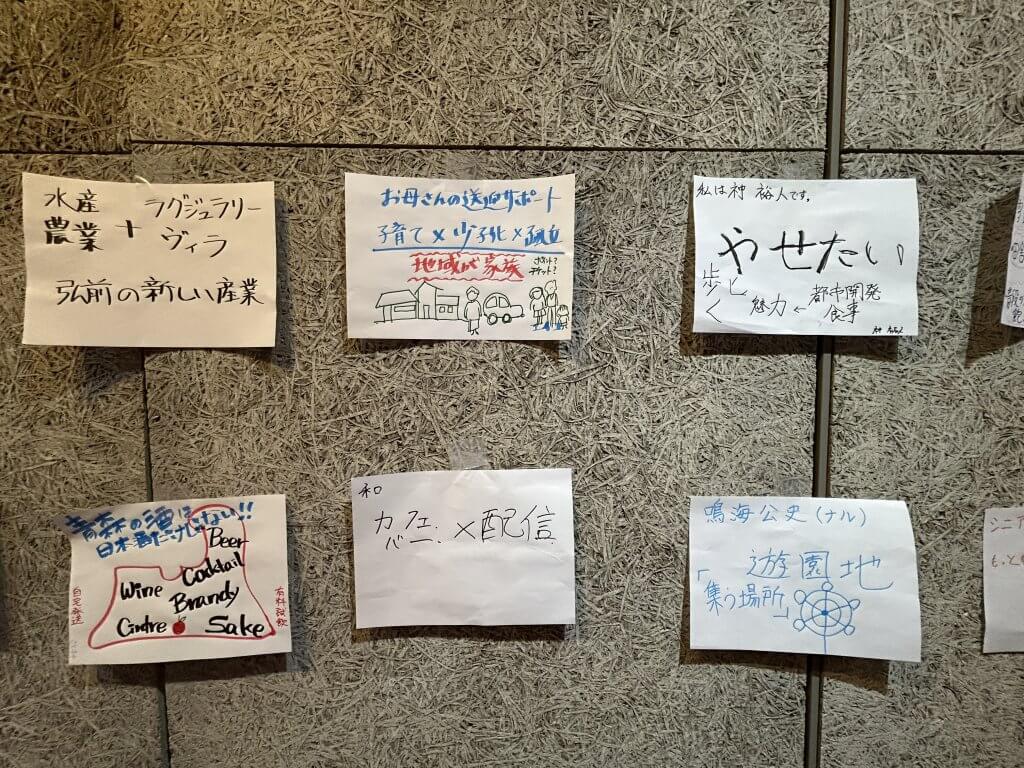 水産 ラグジュラリー
農業 + ヴィラ
弘前の新しい産業
お母さんの送迎サポート
子育て×少子化×孤立
地域が家族
チケット?
私は神 裕人です。
やせたい
歩 く
魅力 ← 都市開発
食事
青森の酒は
日本酒だけじゃない!!
Beer
Cocktail
Wine
Brandy
Cindre
Sake
自宅発送
有料試飲
和
カフェ
バー × 配信
鳴海公史(ナル)
遊園地
「集う場所」
シニア
もっと